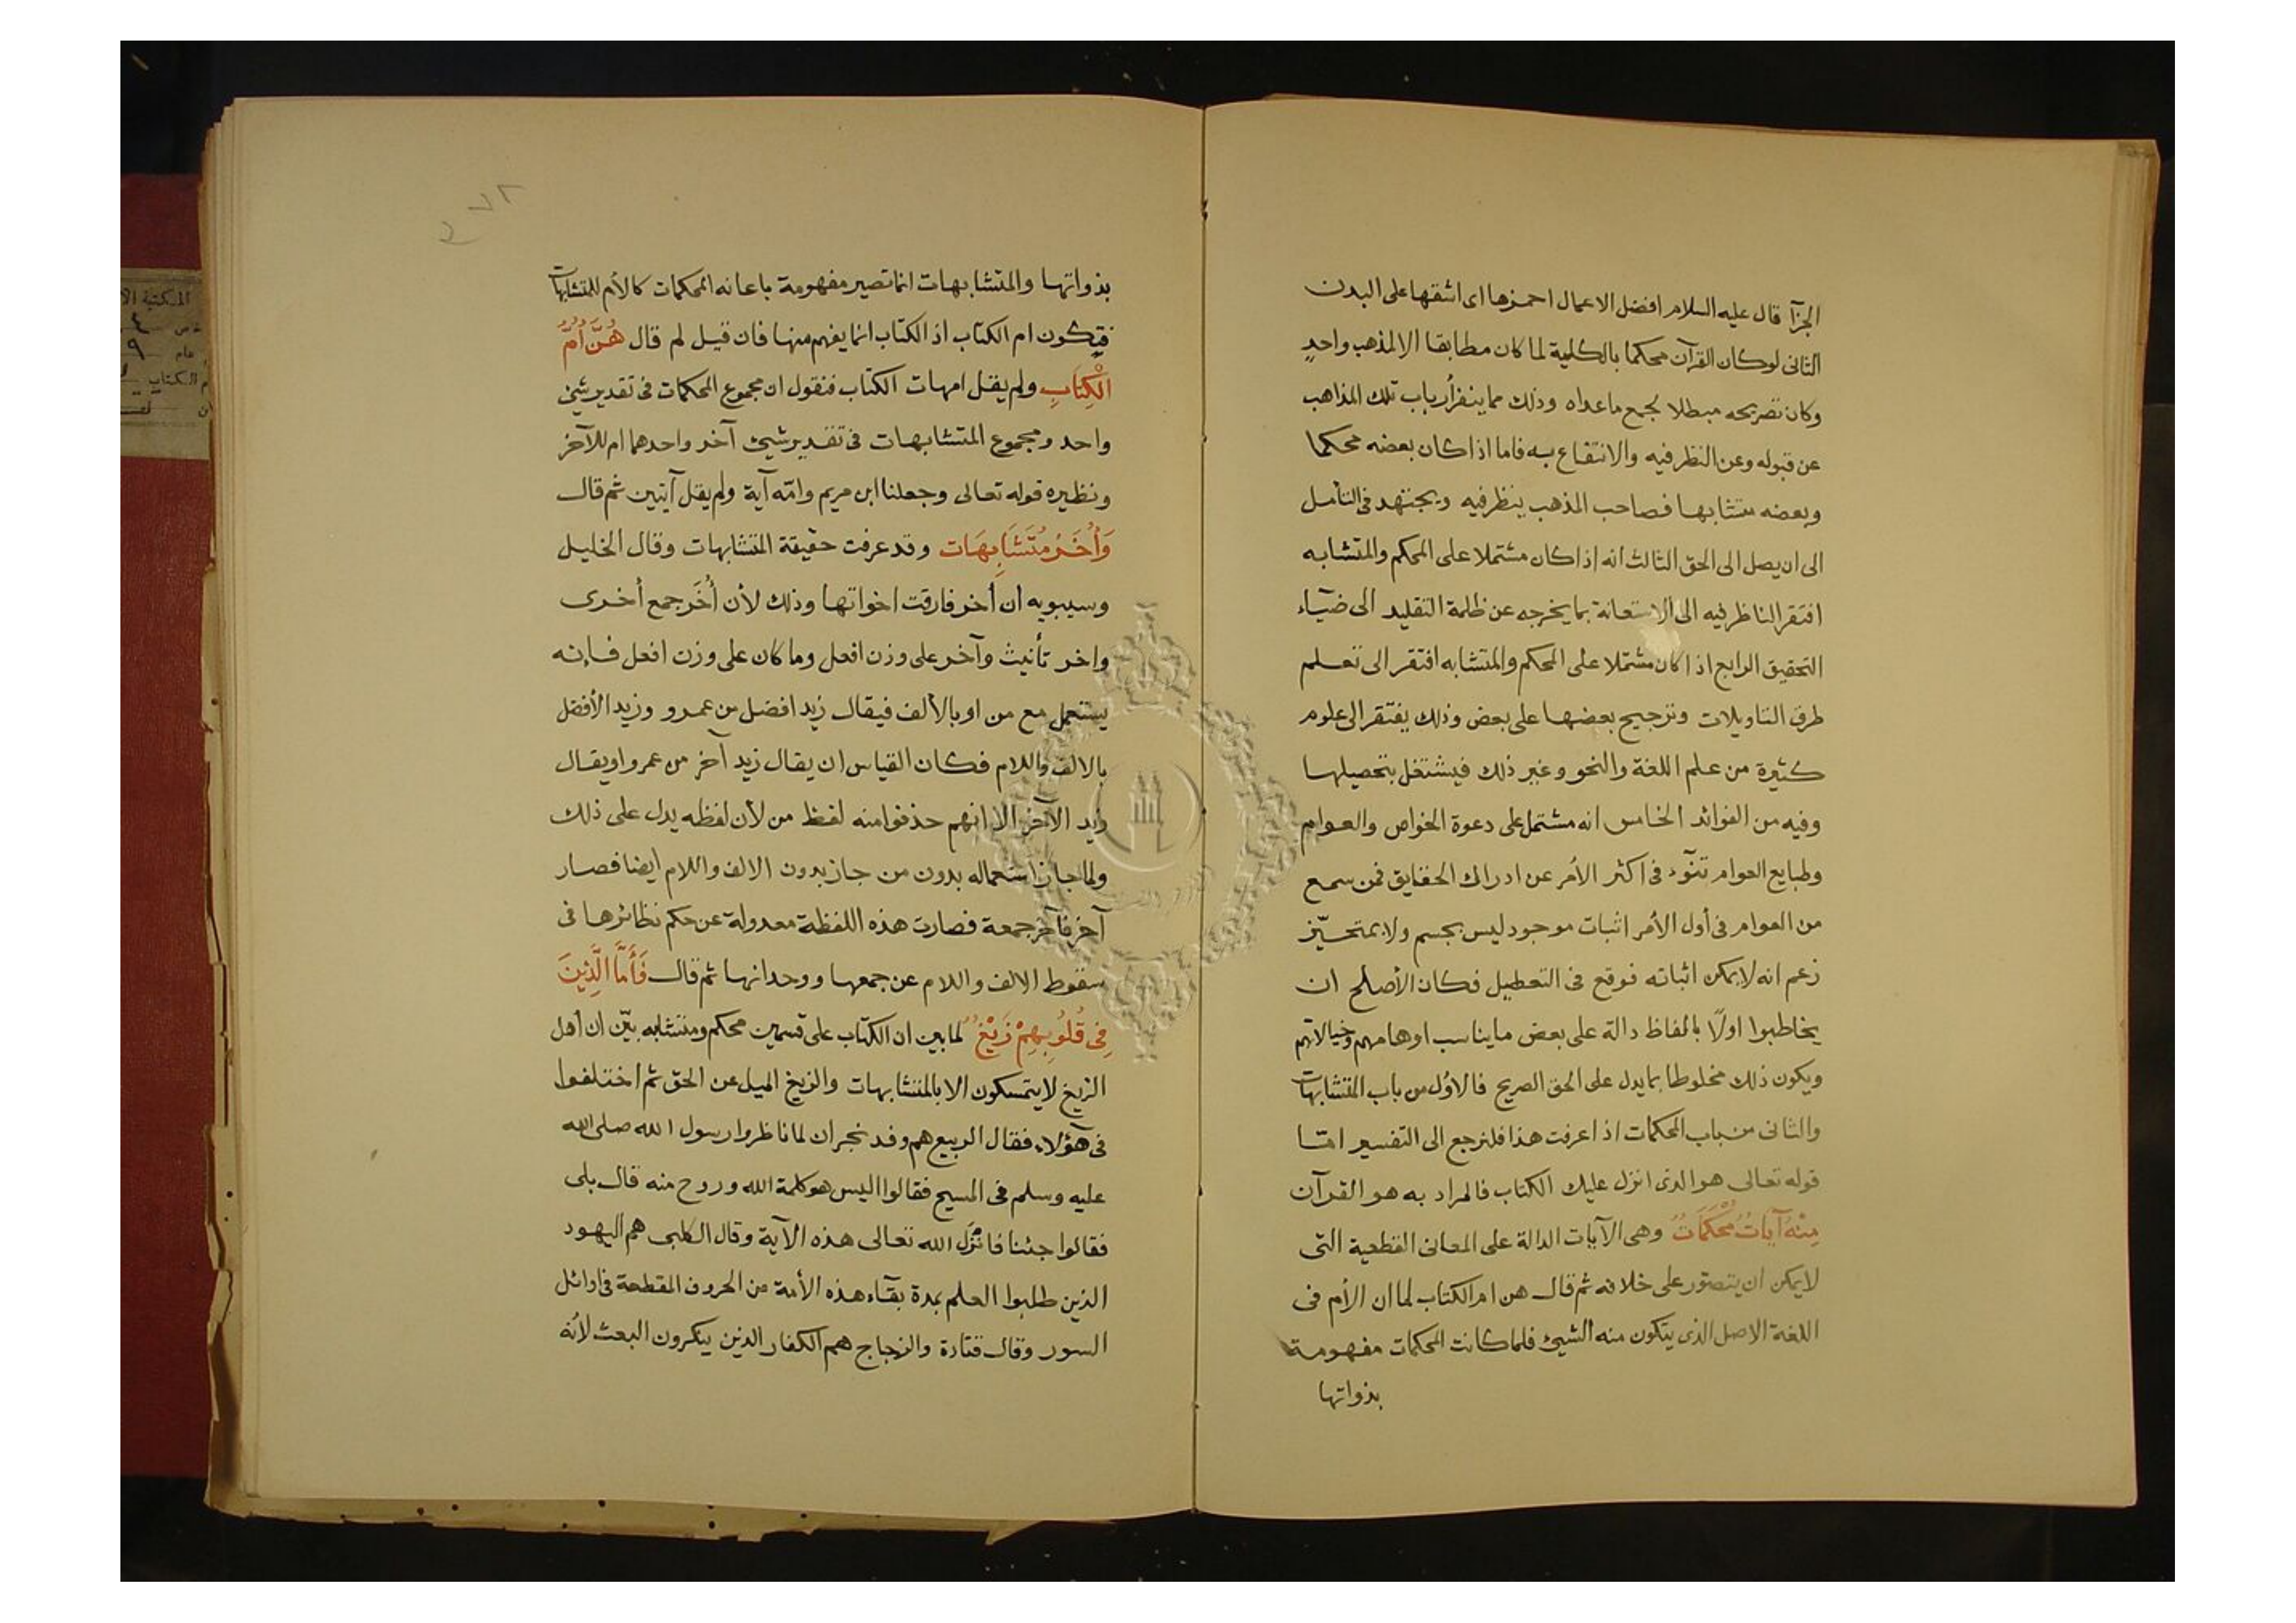 الجزآ قال عليه السلام افضل الاعمال احمزها اى اشقها على البدن
الثانى لوكان القرآن محكما بالكلية لما كان مطابقا الا لمذهب واحدٍ
وكان تصريحه مبطلا لجمع ماعداه وذلك مما ينفر أرباب تلك المذاهب
عن قبوله وعن النظر فيه والانتفاع به فاما اذا كان بعضه محكما
وبعضه متشابها فصاحب المذهب ينظر فيه ويجتهد فى التأمل
الى ان يصل الى الحق الثالث انه اذا كان مشتملا على المحكم والمتشابه
افتقر الناظر فيه الى الاستعانة بما يخرجه عن ظلمة التقليد الى ضيآء
التحقيق الرابع اذا كان مشتملا على المحكم والمتشابه افتقر الى تعلم
طرق التاويلات وترجيح بعضها على بعض وذلك يفتقر الى علوم
كثيرة من علم اللغة والنحو وغير ذلك فيشتغل بتحصيلها
وفيه من الفوائد الخامس انه مشتمل على دعوة الخواص والعوام
وطبايع العوام تنوٓء فى اكثر الأمر عن ادراك الحقايق فمن سمع
من العوام فى أول الأمر اثبات موجود ليس بجسم ولا بمتحيّز
زعم انه لا يمكن اثباته فوقع فى التعطيل فكان الأصلح ان
يخاطبوا اولًا بالفاظ دالة على بعض ما يناسب اوهامهم وخيالاتهم
ويكون ذلك مخلوطا بما يدل على الحق الصريح فالاوّل من باب المتشابهات
والثانى من باب المحكمات اذا عرفت هذا فلنرجع الى التفسير امّا
قوله تعالى هو الذى انزل عليك الكتاب فالمراد به هو القرآن
مِنْهُ آيَاتٌ مُحْكَمَاتٌ وهى الآيات الدالة على المعانى القطعية التى
لا يمكن ان يتصوّر على خلافه ثم قال هن ام الكتاب لما ان الأم فى
اللغة الاصل الذى يتكون منه الشيئ فلما كانت المحكمات مفهومة
بذواتها
بذواتها والمتشابهات انما تصير مفهومة باعانه المحكمات كالأم للمتشابهات
فيكون ام الكتاب اذ الكتاب انما يفهم منها فان قيل لم قال هُنَّ أُمُّ
الْكِتَابِ ولم يقل امهات الكتاب فنقول ان مجموع المحكمات فى تقدير شيئ
واحد ومجموع المتشابهات فى تقدير شيئ آخر واحدهما ام للآخر
ونظيره قوله تعالى وجعلنا ابن مريم وامّه آية ولم يقل آيتين ثم قال
وَأُخَرُ مُتَشَابِهَات وقد عرفت حقيقة المتشابهات وقال الخليل
وسيبويه أن أخر فارقت اخواتها وذلك لأن أُخَر جمع أخرى
واخر تأنيث وآخر على وزن افعل وما كان على وزن افعل فانه
يستعمل مع من او بالألف فيقال زيد افضل من عمرو وزيد الأفضل
بالالف واللام فكان القياس ان يقال زيد آخر من عمرو او يقال
زيد الآخر الا انهم حذفوا منه لفظ من لأن لفظه يدل على ذلك
ولما جاز استعماله بدون من جاز بدون الالف واللام ايضا فصار
آخر فآخر جمعة فصارت هذه اللفظة معدولة عن حكم نظائرها فى
سقوط الالف واللام عن جمعها ووحدانها ثم قال فَأَمَّا الَّذِينَ
فِى قُلُوبِهِمْ زَيْغٌ لما بين ان الكتاب على قسمين محكم ومتشابه بيّن ان أهل
الزيغ لا يتمسكون الا بالمتشابهات والزيغ الميل عن الحق ثم اختلفوا
فى هؤلآء فقال الربيع هم وفد نجران لما ناظروا رسول الله صلى الله
عليه وسلم فى المسيح فقالوا اليس هو كلمة الله وروح منه قال بلى
فقالوا جئنا فانزل الله تعالى هذه الآية وقال الكلبى هم اليهود
الذين طلبوا العلم بمدة بقآء هذه الأمة من الحروف المقطعة فى اوائل
السور وقال قتادة والزجاج هم الكفار الذين ينكرون البعث لأنه